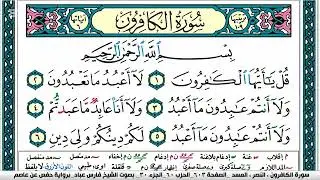 سورة الكافرون
بِسْمِ ٱللَّهِ ٱلرَّحْمَٰنِ ٱلرَّحِيمِ
قُلْ يَٰٓأَيُّهَا ٱلْكَٰفِرُونَ ١ لَآ أَعْبُدُ مَا تَعْبُدُونَ ٢
وَلَآ أَنتُمْ عَٰبِدُونَ مَآ أَعْبُدُ ٣ وَلَآ أَنَا۠ عَابِدٌ مَّا عَبَدتُّمْ ٤
وَلَآ أَنتُمْ عَٰبِدُونَ مَآ أَعْبُدُ ٥ لَكُمْ دِينُكُمْ وَلِىَ دِينِ ٦
سورة الكافرون - النصر - المسد - الصفحة ٦٠٣ - الحزب ٦٠ - الجزء ٣٠ - بصوت الشيخ فارس عباد - برواية حفص عن عاصم